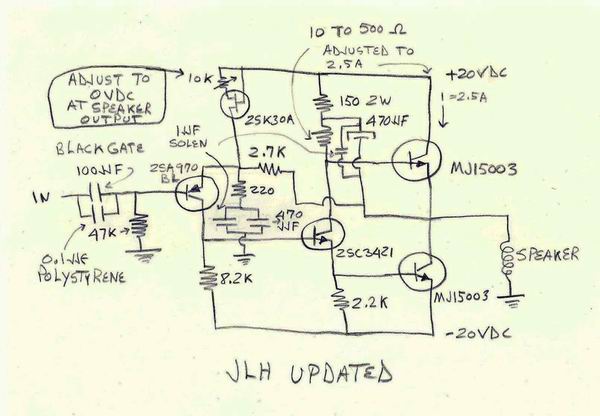 10 TO 500 Ω
ADJUSTED TO
2.5A
ADJUST TO
0VDC
AT SPEAKER
OUTPUT
10K
+20VDC
I=2.5A
150 2W
2SK30A
470UF
1UF
SOLEN
BLACKGATE
100UF
2SA970
BL
2.7K
MJ15003
IN
220
470
UF
47K
2SC3421
SPEAKER
0.1UF
POLYSTYRENE
8.2K
2.2K
MJ15003
-20VDC
JLH UPDATED